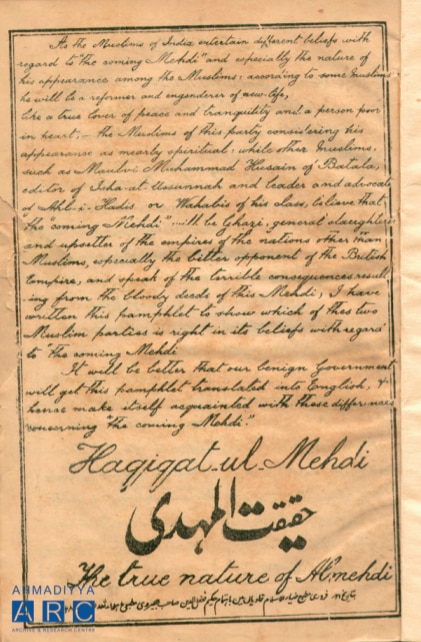 As the Muslims of India entertain different beliefs with
regard to "the coming Mehdi" and especially the nature of
his appearance among the Muslims: according to some Muslims
he will be a reformer and engenderer of new-life,
like a true lover of peace and tranquility and a person poor
in heart, – the Muslims of this party considering his
appearance as mearly spiritual: while other Muslims.
such as Maulvi Muhammad Husain of Batala,
editor of Isha-at Ussunnah and leader and advocate
of Ahl-i-Hadis or Wahabis of his class, believe that
the "coming Mehdi" ...ill be Ghazi, general slaughterer
and upsetter of the empires of the nations other than
Muslims, especially the bitter opponent of the British
Empire, and speak of the terrible consequences result
-ing from the bloody deeds of this Mehdi; I have
written this pamphlet to show which of thes two
Muslim parties is right in its beliefs with regard
to "the coming Mehdi
It will be better that our benign Government
will get this pamphlet translated into English, &
hense make itself acquainted with these differences
concerning "the coming Mehdi."
Haqiqat-ul-Mehdi
حقیقت المہدی
The true nature of Al-mehdi
AHMADIYYA
ARC
ARCHIVE & RESEARCH CENTRE